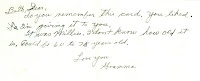 Beth, Dear,
Do you remember this card, you liked.
I am giving it to you,
It was Millie's. I don't know how old it
is. Could be 60 to 75 year old.
Love you
Gramma.